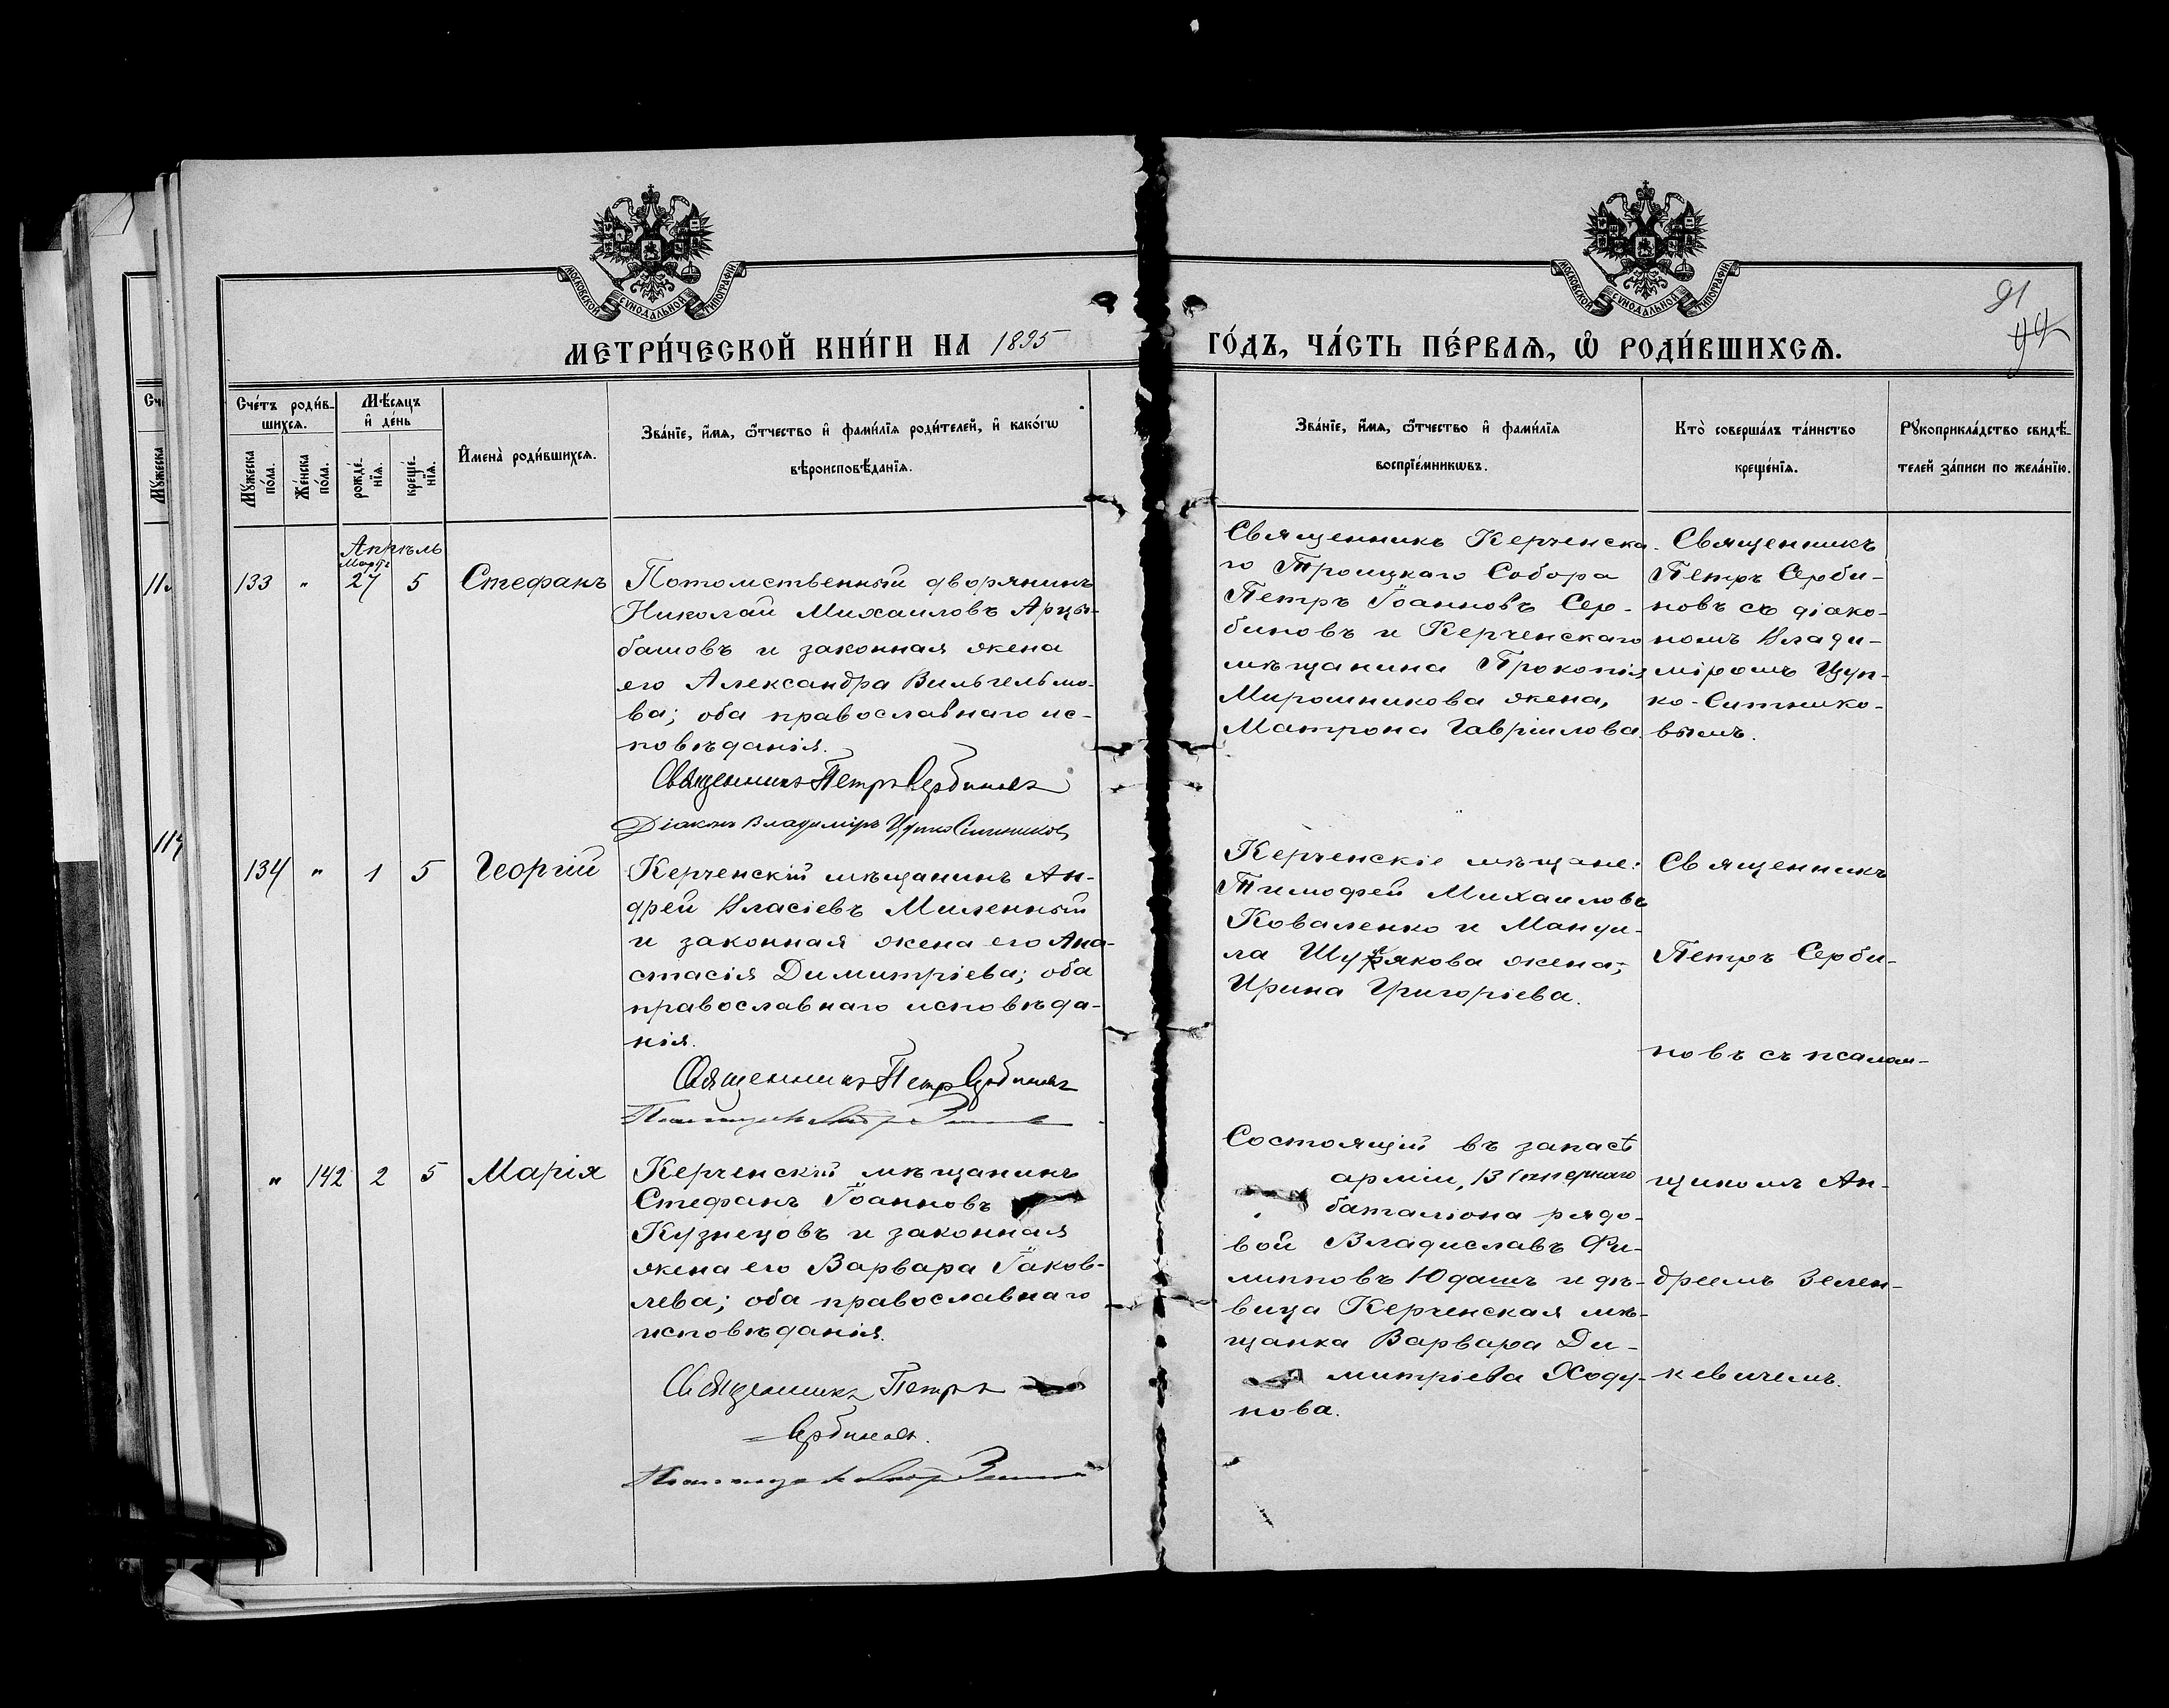 МОСКОВСКОЙ СУНОДАЛЬНОЙ ТИПОГРАФІИ
МОСКОВСКОЙ СУНОДАЛЬНОЙ ТИПОГРАФІИ
91
МЕТРИ́ЧЕСКОЙ КНИ́ГИ НА 1895
ГО́ДЪ, ЧА́СТЬ ПЕ́РВАѦ, Ѡ РОДИ́ВШИХСѦ.
Сче́тъ роди́в-
шихсѧ.
Мѣ́сѧцъ
и҆ де́нь
Мꙋ́жеска
по́ла.
Же́нска
по́ла.
рожде́-
нїѧ.
креще́-
нїѧ.
И҆мена̀ роди́вшихсѧ.
Зва́нїе, и҆́мѧ, ѻ҆́тчество и҆ фами́лїѧ роди́телей, и҆ како́гѡ
вѣроисповѣ́данїѧ.
Зва́нїе, и҆́мѧ, ѻ҆́тчество и҆ фами́лїѧ
воспрїе́мникѡвъ.
Кто̀ соверша́лъ та́инство
креще́нїѧ.
Рꙋкоприкла́дство свидѣ́-
телей за́писи по жела́нїю.
Апрѣль
Марта
133 " 27 5 Стефанъ
Потомственный дворянинъ
Николай Михаиловъ Арцы-
башовъ и законная жена
его Александра Вильгельмо-
ва; оба православнаго ис-
повѣданія.
Священникъ Петръ Сербиновъ
Діаконъ Владиміръ Цупко Ситников
Священникъ Керченска-
го Троицкаго Собора
Петръ Іоанновъ Сер-
биновъ и Керченскаго
мѣщанина Прокопія
Мирошникова жена,
Матрона Гавріилова.
Священникъ
Петръ Серби-
новъ съ діако-
номъ Влади-
міромъ Цуп-
ко-Ситнико-
вымъ.
134 " 1 5 Георгій
Керченскій мѣщанинъ Ан-
дрей Власіевъ Миленный
и законная жена его Ана-
стасія Димитріева; оба
православнаго исповѣда-
нія.
Священникъ Петръ Сербиновъ
Керченскіе мѣщане:
Тимофей Михаиловъ
Коваленко и Мануи-
ла жена;
Ирина Григоріева.
Священникъ
Петръ Серби-
новъ съ псалом-
" 142 2 5 Марія
Керченскій мѣщанинъ
Стефанъ Іоанновъ
Кузнецовъ и законная
жена его Варвара Іаков-
лева; оба православнаго
исповѣданія.
Священникъ Петръ
Сербиновъ.
Состоящій въ запасѣ
арміи, 13 Сапернаго
баталіона рядо-
вой Владиславъ Фи-
липповъ Юдашъ и дѣ-
вица Керченская мѣ-
щанка Варвара Ди-
митріева Ходу-
нова.
щикомъ Ан-
дреемъ Зелен-
кевичемъ.